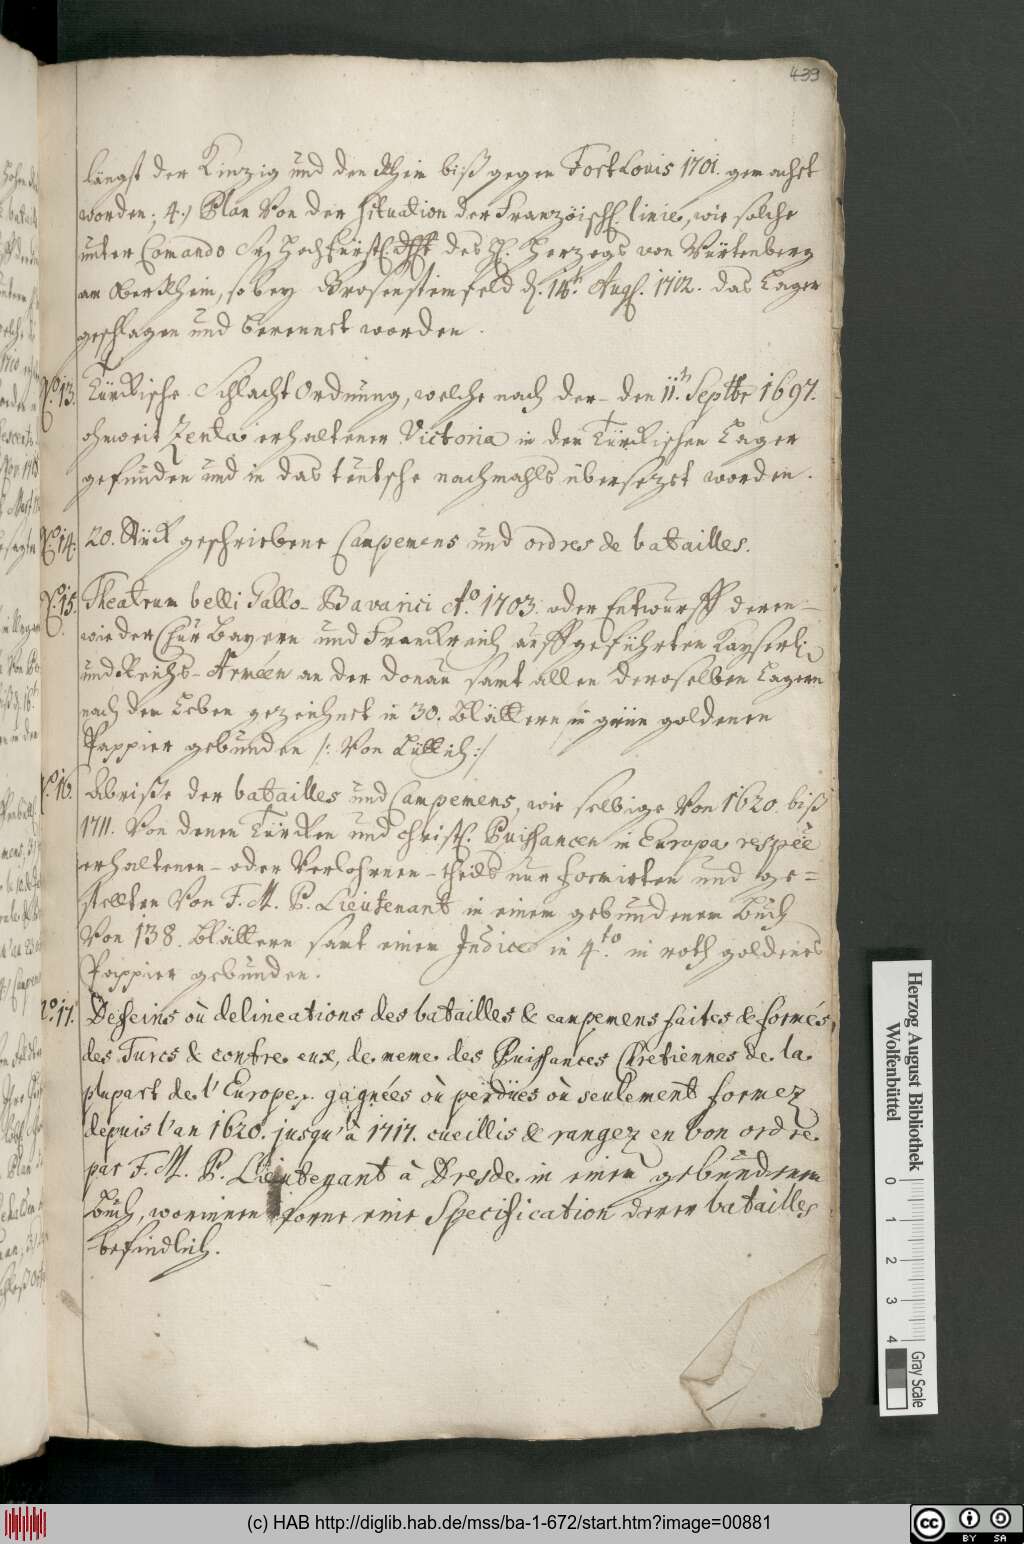 433
längst der Kinzig und den Rhein biß gegen Fort Louis 1701. gemachet
worden; 4.) Plan von der situation der Französisch. linie, wie solche
unter Comando Sr Hochfürstl. des H. Herzogs von Würtenberg
am Ober Rhein, so bey d. 14t. Aug. 1702. das Lager
geschlagen und berennet worden.
No. 13. Türckische Schlacht Ordnung, welche nach der - den 11.n Septbr 1697.
ohnweit Zenta erhaltener Victoria in den Türckischen Lager
gefunden und in das teütsche nachmahls übersezet worden.
No. 14. 20. Stück geschriebene Campemens und ordres de batailles.
No. 15. Theatrum belli Gallo-Bavarici Ao. 1703. oder Entwurff deren -
wieder Chur Bayern und Franckreich auffgeführten Kayserl.
und Reichs-Armeen an der Donau samt allen deroselben Lagern
nach dem Leben gezeichnet in 30. Blättern in grün goldenen
Pappier gebunden /: von Lüttich :/
No. 16. Abriße der batailles und Campemens, wie selbige von 1620. biß
1711. von denen Türcken und christl. Puissancen in Europa respée
erhaltenen - oder verlohrnen - theils nur formirten und ge=
stellten von F. M. P. Lieutenant in einem gebundenem Buch
von 138. Blättern samt einem Indice in 4.to in roth goldenes
Pappier gebunden.
No. 17. Desseins où delineations des batailles & campemens faites & formés,
des Turcs & contre eux, de meme des Puissances Chretiennes de la
plupart de l'Europe, gagnées où perdües où seulement formez
depuis l'an 1620. jusqu'à 1717. cueillis & rangez en bon ordre
par F. M. P. Lieutenant à Dresde in einem gebundenem
Buch, worinnen forne eine Specification derer batailles
befindlich.
Herzog August Bibliothek
Wolfenbüttel
0 1 2 3 4
Gray Scale
(c) HAB http://diglib.hab.de/mss/ba-1-672/start.htm?image=00881
cc BY SA